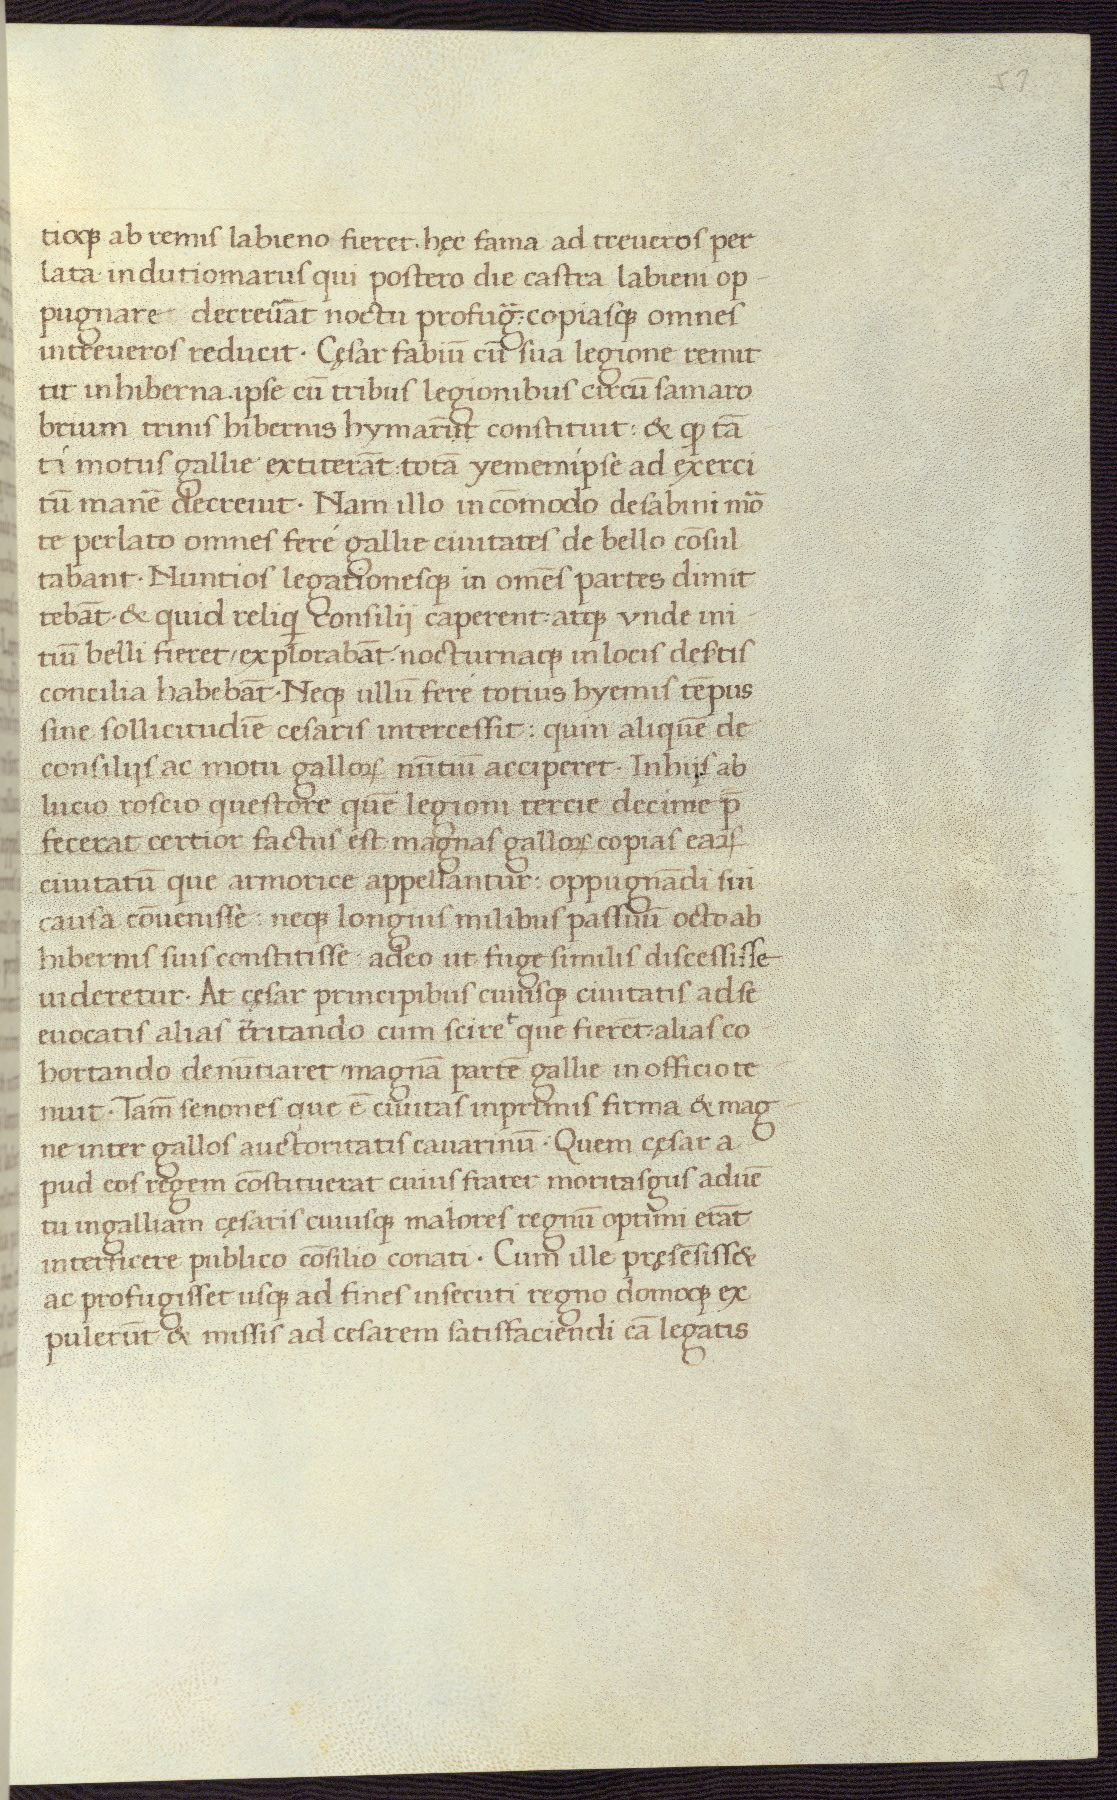 57
tioq; ab remis labieno fieret. hęc fama ad treueros per
lata indutiomarus qui postero die castra labieni op
pugnare decreuāt noctu profug̃: copiasq; omnes
intreueros reducit. Cęsar fabiū cū sua legione remit
tit inhiberna. ipse cū tribus legionibus circū samaro
brium trinis hibernis hymar̄ut constituit: & qp tā
ti motus gallie extiterāt: totā yememipse ad exerci
tū manēe decreuit. Nam illo incōmodo desabini mōr
te perlato omnes feré gallie ciuitates de bello cōsul
tabant. Nuntios legationesq; in omēs partes dimit
tebāt. & quid reliqi consilij caperent: atq; vnde ini
tiū belli fieret / explorabāt. nocturnaq; inlocis deſtis
concilia habebāt. Neq; ullū feré totius hyemis tēpus
sine sollicitudīe cesaris intercessit: quin aliquē de
consilijs ac motu galloꝝ nūtiū acciperet. Inhijs ab
lucio roscio questore quē legioni tercie decime p̄
fecerat certior factus est magnas galloꝝ copias eaꝝ
ciuitatū que armorice appellantur: oppugnādi sui
causa cōuenisse: neq; longius milibus passuū octo ab
hibernis suis constitisse: adeo ut fuge similis discessisse
uideretur. At cęsar principibus cuiusq; ciuitatis adse
euocatis alias t̄rritando cum scireᵗ que fierēt: alias co
hortando denūtiaret magnā partē gallie inofficio te
nuit. Tam̄ senones que ē ciuitas inprimis firma & mag
ne inter gallos auctoritatis cauarinū. Quem cęsar a
pud eos regem cōstituerat cuius frater moritasgus aduē
tu ingalliam cęsaris cuiusq; maiores regnū optimi erāt
interficere publico cōsilio conati. Cum ille pręsēsiss&
ac profugisset usq; ad fines insecuti regno domoq; ex
pulerūt & missis ad cesarem satisfaciendi cā legatis